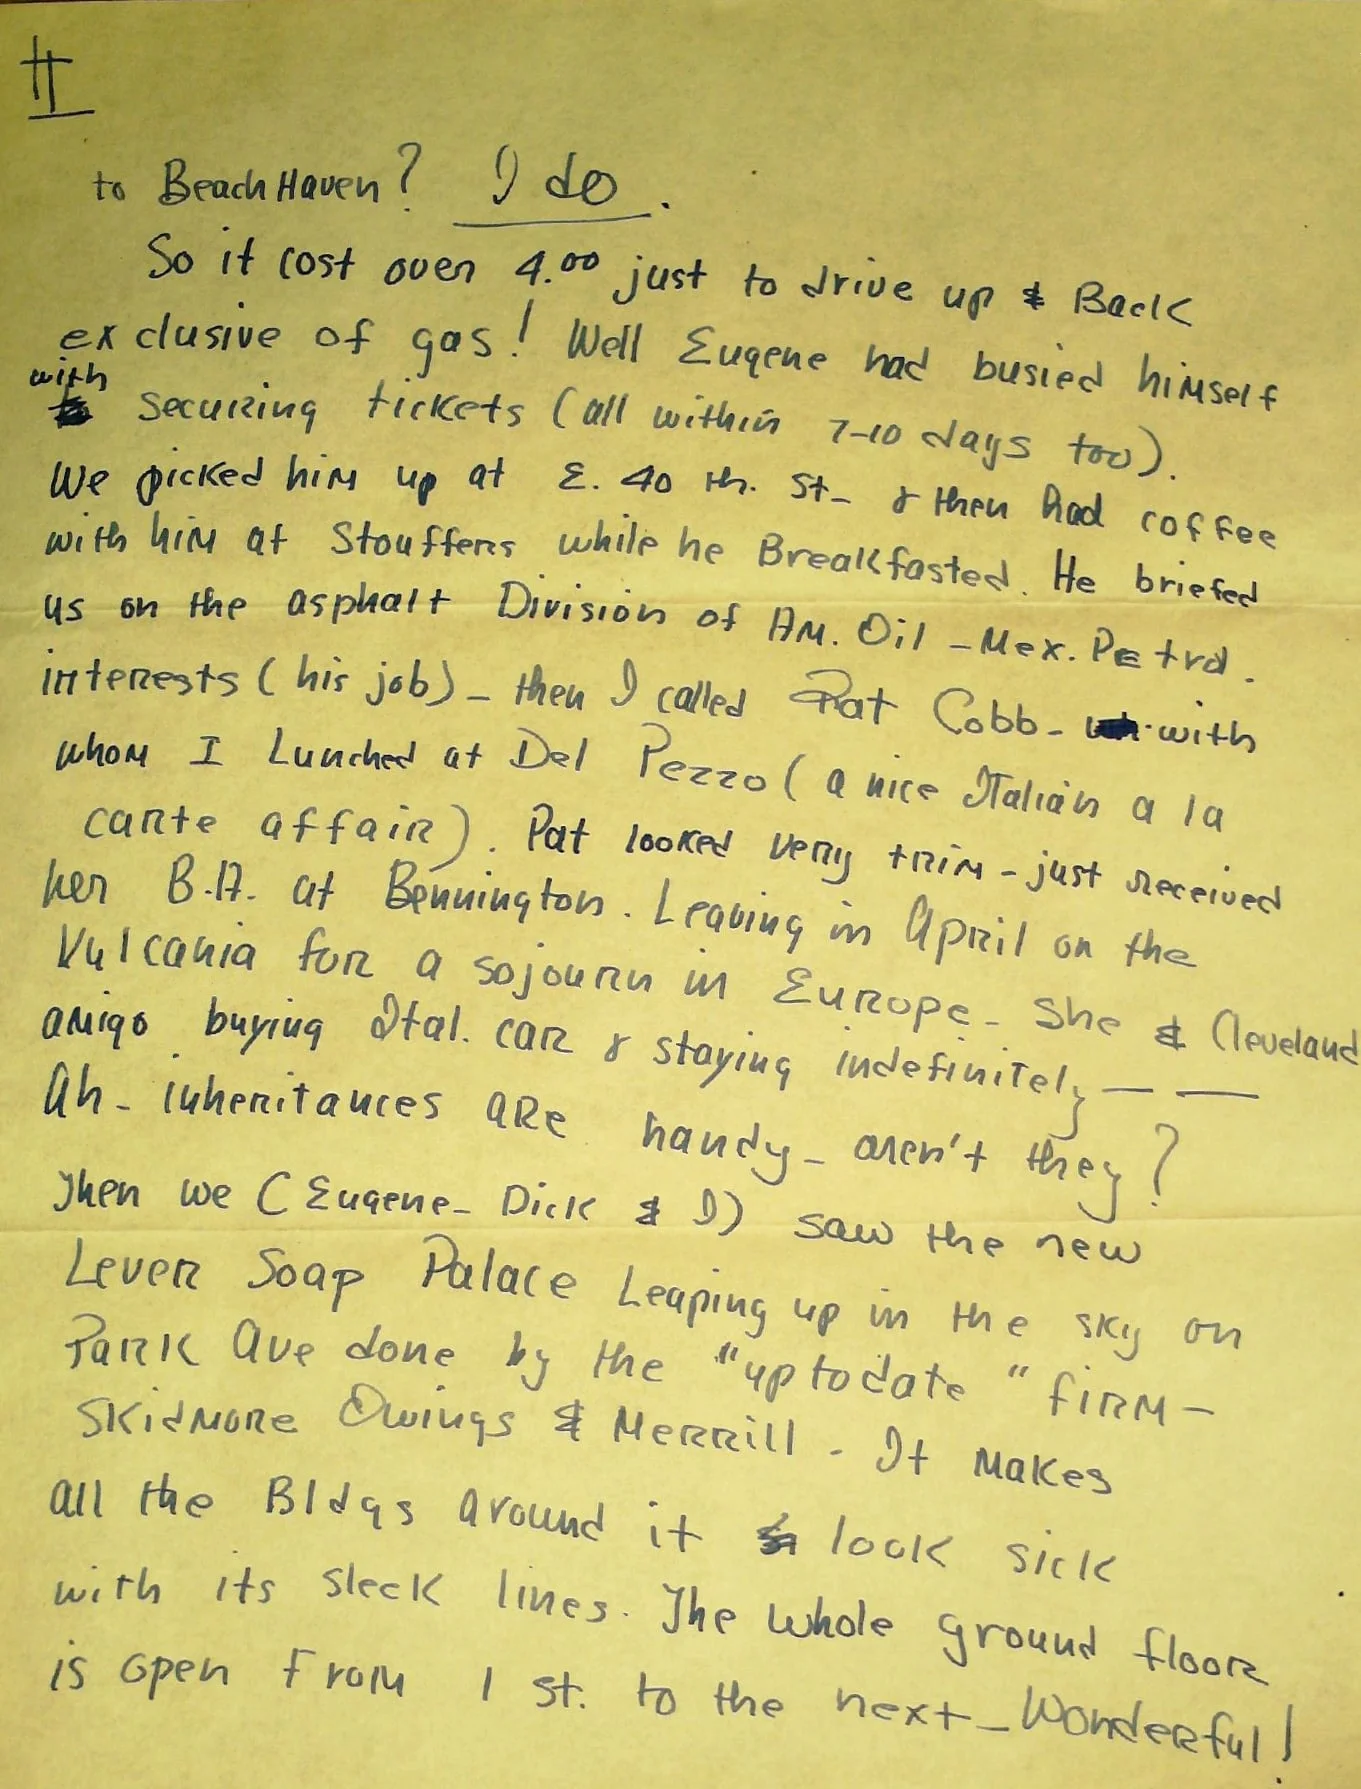 II
to Beach Haven? I do.
So it cost over 4.00 just to drive up & Back
exclusive of gas! Well Eugene had busied himself
with
securing tickets (all within 7-10 days too).
We picked him up at E. 40 th. St_ & then had coffee
with him at Stouffers while he Breakfasted. He briefed
us on the asphalt Division of Am. Oil - Mex. Petrol.
interests (his job) - then I called Pat Cobb - with
whom I Lunched at Del Pezzo (a nice Italian a la
carte affair). Pat looked very trim - just received
her B.A. at Bennington. Leaving in April on the
Vulcania for a sojourn in Europe - She & Cleveland
amigo buying Ital. car & staying indefinitely — —
Ah - inheritances are handy - aren't they?
Then we (Eugene - Dick & I) saw the new
Lever Soap Palace Leaping up in the sky on
Park Ave done by the "up to date" firm -
Skidmore Owings & Merrill - It makes
all the Bldgs around it look sick
with its sleek lines. The whole ground floor
is open from 1 st. to the next - Wonderful!